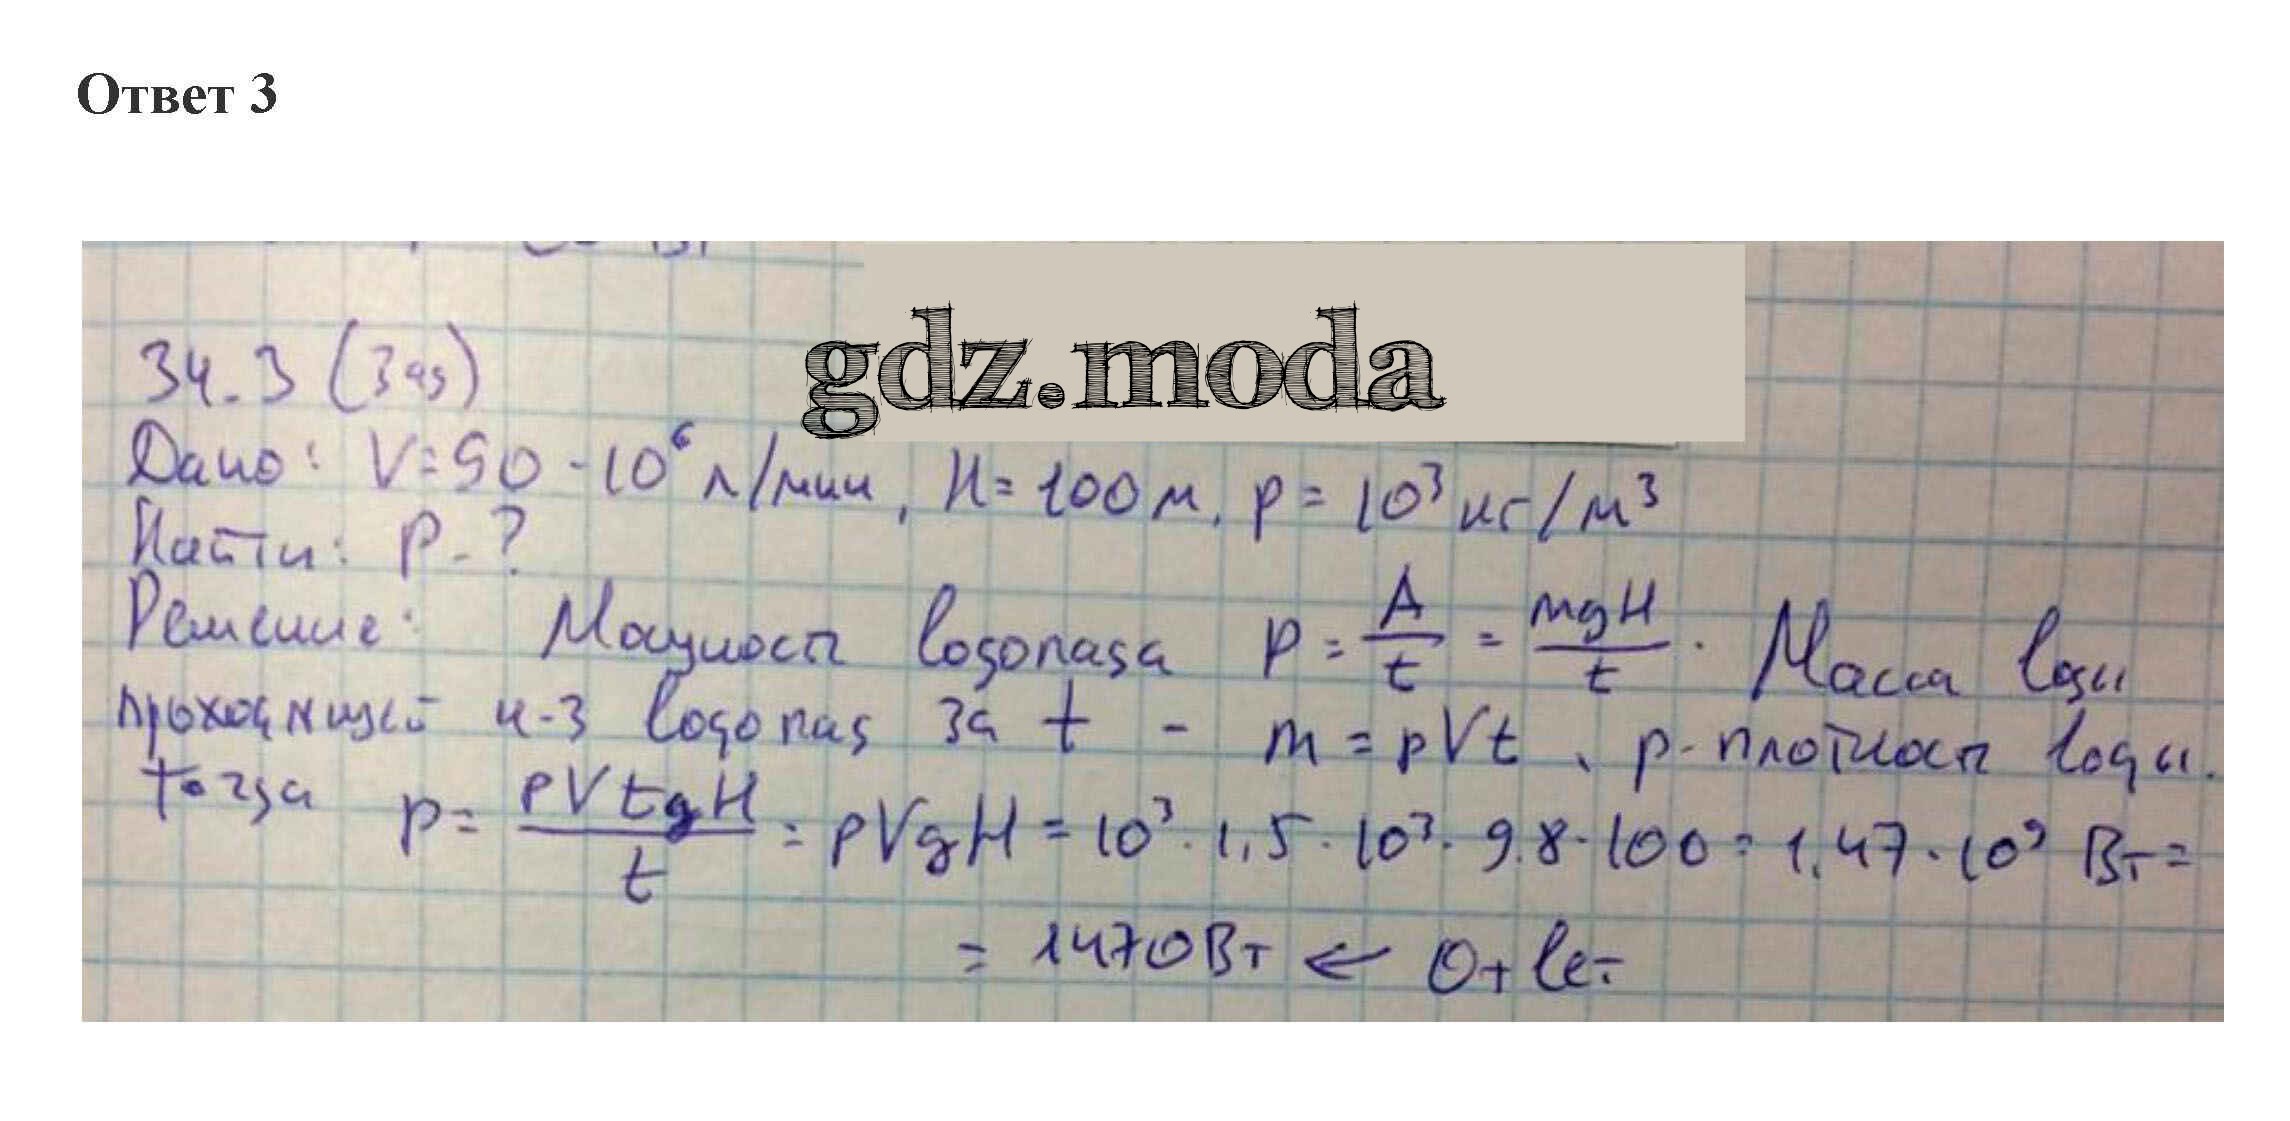 Ответ 3
gdz.moda
34.3 (3 уз)
Дано: V=90·10⁶ л/мин, H=100м, ρ=10³ кг/м³
Найти: P-?
Решение: Мощность водопада P = A/t = mgH/t. Масса воды
проходящей ч-з водопад за t - m = ρVt, ρ-плотность воды.
тогда P= ρVtgH/t = ρVgH = 10³·1,5·10³·9.8·100 = 1,47·10⁹ Вт=
= 1470Вт ← Ответ